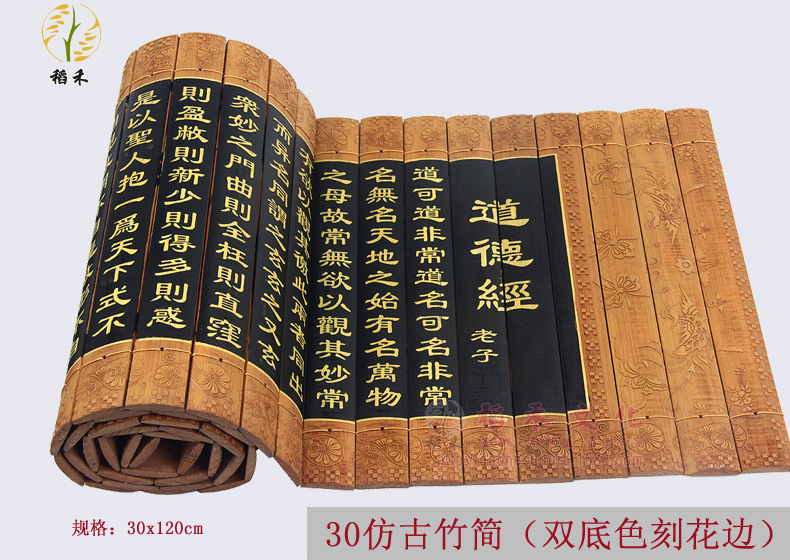 稻禾
道德經
老子
道可道非常道名可名非常
名無名天地之始有名萬物
之母故常無欲以觀其妙常
欲以觀其徼此兩者同出
而異名同謂之玄玄之又玄
衆妙之門曲則全枉則直窪
則盈敝則新少則得多則惑
是以聖人抱一爲天下式不
稻禾文化
规格：30x120cm
30仿古竹简（双底色刻花边）